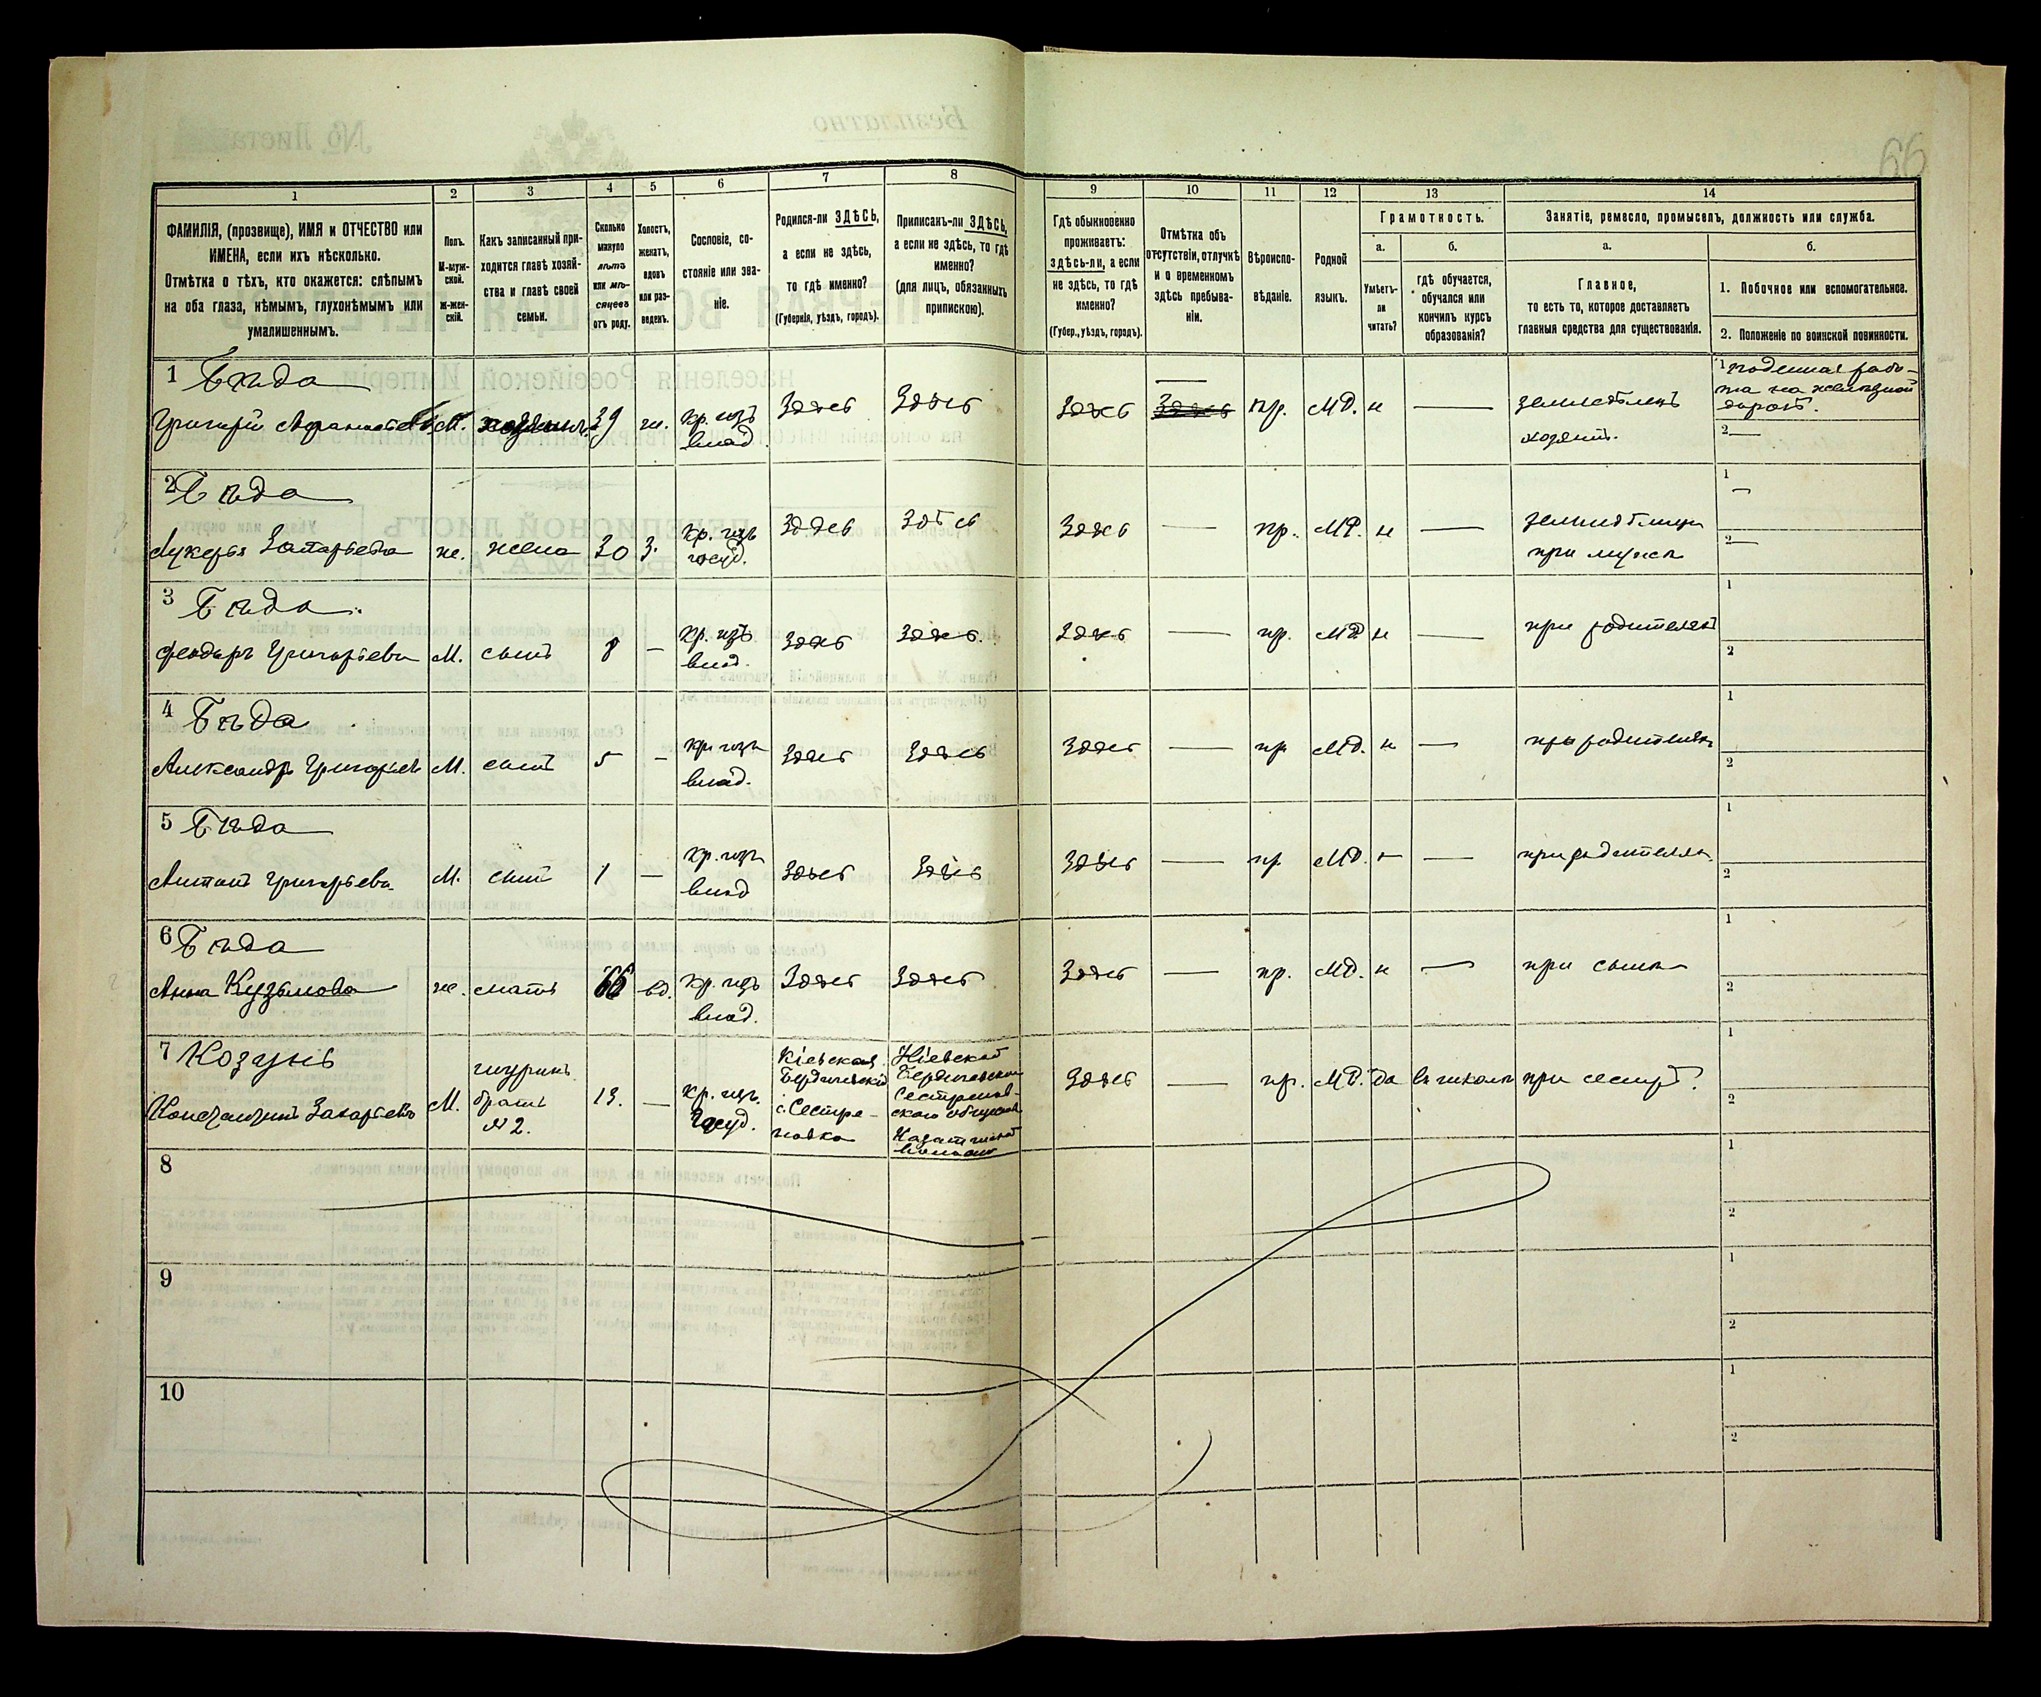 66
1
2
3
4
5
6
7
8
9
10
11
12
13
14
ФАМИЛІЯ, (прозвище), ИМЯ и ОТЧЕСТВО или
ИМЕНА, если ихъ нѣсколько.
Отмѣтка о тѣхъ, кто окажется: слѣпымъ
на оба глаза, нѣмымъ, глухонѣмымъ или
умалишеннымъ.
Полъ.
М-муж-
ской.
Ж-жен-
скій.
Какъ записанный при-
ходится главѣ хозяй-
ства и главѣ своей
семьи.
Сколько
минуло
лѣтъ
или мѣ-
сяцевъ
отъ роду.
Холостъ,
женатъ,
вдовъ
или раз-
веденъ.
Сословіе, со-
стояніе или зва-
ніе.
Родился-ли ЗДѢСЬ,
а если не здѣсь,
то гдѣ именно?
(Губернія, уѣздъ, городъ).
Приписанъ-ли ЗДѢСЬ,
а если не здѣсь, то гдѣ
именно?
(для лицъ, обязанныхъ
припискою).
Гдѣ обыкновенно
проживаетъ:
здѣсь-ли, а если
не здѣсь, то гдѣ
именно?
(Губер., уѣздъ, городъ).
Отмѣтка объ
отсутствіи, отлучкѣ
и о временномъ
здѣсь пребыва-
ніи.
Вѣроиспо-
вѣданіе.
Родной
языкъ.
Грамотность.
а.
б.
Умѣетъ-
ли
читать?
гдѣ обучается,
обучался или
кончилъ курсъ
образованія?
Занятіе, ремесло, промыселъ, должность или служба.
а.
б.
Главное,
то есть то, которое доставляетъ
главныя средства для существованія.
1. Побочное или вспомогательное.
2. Положеніе по воинской повинности.
1 Бѣда
Григорій М. хозяинъ 39 ж. кр. изъ
влад. Здѣсь Здѣсь Здѣсь Здѣсь пр. МР. н — земледѣлецъ
хозяинъ.
1 поденная рабо-
та на желѣзной
дорогѣ.
2 —
2 Бѣда
Лукерья Захарьева ж. жена 30 З. кр. изъ
госуд. Здѣсь Здѣсь Здѣсь — пр. МР. н —
при мужѣ
1 —
2 —
3 Бѣда
Феодоръ Григорьевъ М. сынъ 8 — кр. изъ
влад. Здѣсь Здѣсь. Здѣсь — пр. МР н — при родителяхъ
1
2
4 Бѣда
Александръ Григорьевъ М. сынъ 5 — кр. изъ
влад. Здѣсь Здѣсь Здѣсь — пр МР. н — при родителяхъ
1
2
5 Бѣда
Антонъ Григорьевъ М. сынъ 1 — кр. изъ
влад Здѣсь Здѣсь Здѣсь — пр МР. — — при родителяхъ
1
2
6 Бѣда
Анна Кузьмова ж. мать 66 вд. кр. изъ
влад. Здѣсь Здѣсь Здѣсь — пр. МР. н — при сынѣ
1
2
7 Козунь
Константинъ Захарьевъ М. шуринъ
братъ
№ 2. 13. — кр. изъ
госуд.
Кіевская
Бердичевскій
с. Сестре-
новка
Кіевской
Бердичевскаго
Сестренов-
скаго общества
Казатинской
волости
Здѣсь — пр. МР. да въ школѣ при сестрѣ.
1
2
8
1
2
9
1
2
10
1
2